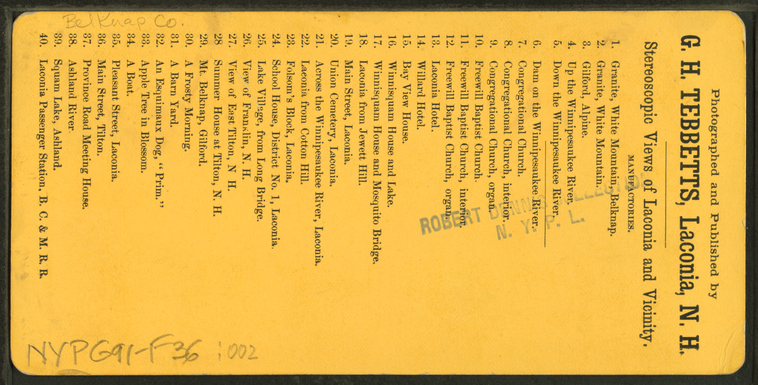 Photographed and Published by
G. H. TEBBETTS, Laconia, N. H.
Stereoscopic Views of Laconia and Vicinity.
MANUFACTORIES.
1. Granite, White Mountain, Belknap.
2. Granite, White Mountain.
3. Gilford, Alpine.
4. Up the Winnipesaukee River.
5. Down the Winnipesaukee River.
6. Dam on the Winnipesaukee River.
7. Congregational Church.
8. Congregational Church, interior.
9. Congregational Church, organ.
10. Freewill Baptist Church.
11. Freewill Baptist Church, interior.
12. Freewill Baptist Church, organ.
13. Laconia Hotel.
14. Willard Hotel.
15. Bay View House.
16. Winnisquam House and Lake.
17. Winnisquam House and Mosquito Bridge.
18. Laconia from Jewett Hill.
19. Main Street, Laconia.
20. Union Cemetery, Laconia.
21. Across the Winnipesaukee River, Laconia.
22. Laconia from Cotton Hill.
23. Folsom's Block, Laconia.
24. School House, District No. 1, Laconia.
25. Lake Village, from Long Bridge.
26. View of Franklin, N. H.
27. View of East Tilton, N H.
28 Summer House at Tilton, N. H.
29. Mt. Belknap, Gilford.
30. A Frosty Morning.
31. A Barn Yard.
32. An Esquimaux Dog, "Prim."
33. Apple Tree in Blossom.
34. A Boat.
35. Pleasant Street, Laconia.
36. Main Street, Tilton.
37. Province Road Meeting House.
38. Ashland River
39. Squam Lake, Ashland.
40. Laconia Passenger Station, B. C. & M. R. R.
ROBERT DENNIS COLLECTION
N. Y. P. L.
Belknap Co.
NYPG91-F36 :002